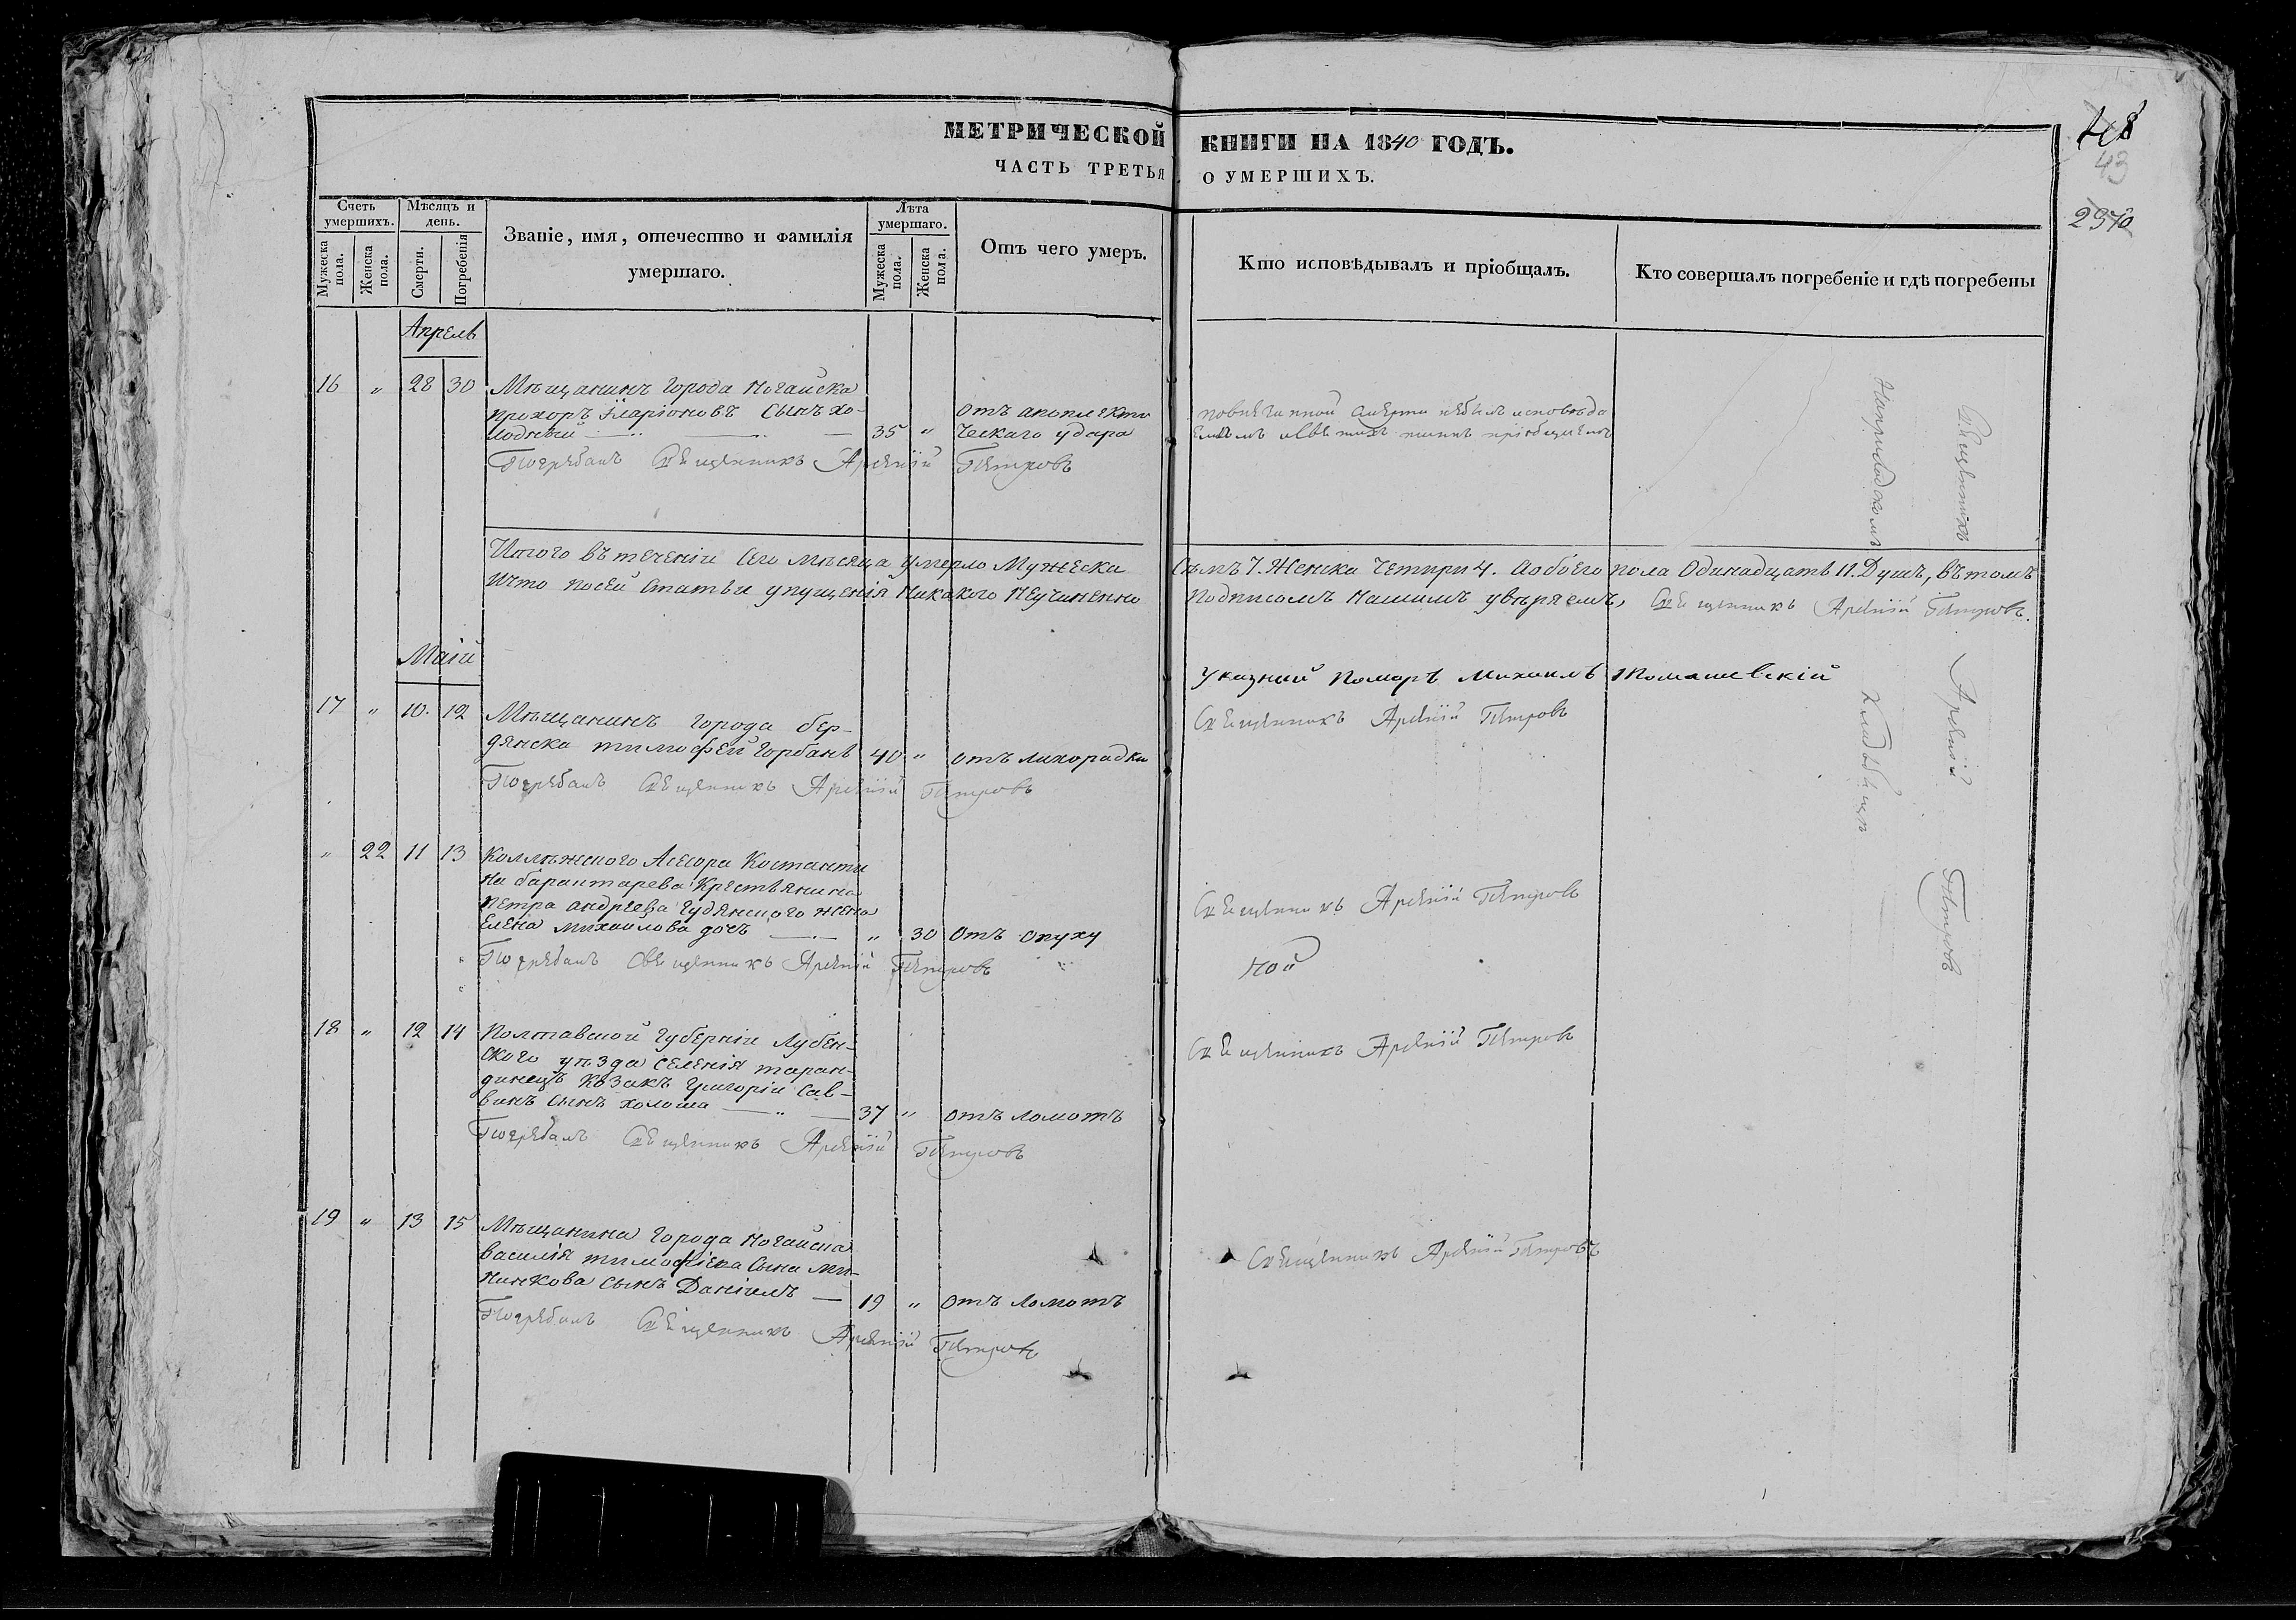 МЕТРИЧЕСКОЙ КНИГИ НА 1840 ГОДЪ.
ЧАСТЬ ТРЕТЬЯ О УМЕРШИХЪ.
43
2370
Счетъ умершихъ.
Мужеска пола.
Женска пола.
Мѣсяцъ и день.
Смерти.
Погребенія
Званіе, имя, отечество и фамилія
умершаго.
Лѣта умершаго.
Мужеска пола.
Женска пола.
Отъ чего умеръ.
Кто исповѣдывалъ и пріобщалъ.
Кто совершалъ погребеніе и гдѣ погребены
Апрель
16 „ 28 30 Мѣщанинъ города Ногайска
прохоръ Иларіоновъ Сынъ хо-
лодный 35 „
отъ апоплекти
ческаго удара
умерти небылъ исповѣда
пріобщенъ
Погребалъ Священникъ Арсеній Петровъ
Итого въ теченіи Сего мѣсяца умерло Мужеска Семъ 7. Женска Четири 4. Аобоего пола Одинадцать 11. Душъ, въ томъ
Ичто посей Статьи упущенія Никакого Неучиненно Подписомъ Нашимъ увѣряемъ, Священникъ Арсеній Петровъ.
Указний Помарь Михаилъ Томашевскій
Маій
17 „ 10. 12 Мѣщанинъ города бер-
дянска тимофей Горбань 40 „ отъ лихорадки
Священникъ Арсеній Петровъ
Погребалъ Священникъ Арсеній Петровъ
„ 22 11 13 Коллѣжского Асесора Костанти
на барантарева Крестьянина
петра андреева Гудянского жена
Елена михайлова дочь „ 30 отъ опуху
Священникъ Арсеній Петровъ
Погребалъ Священникъ Арсеній Петровъ
18 „ 12 14 Полтавской Губерніи Лубен-
ского уѣзда Селенія таран-
динецъ Козакъ Григорій Сав-
винъ Сынъ холоша 37 „ отъ ломотъ
Священникъ Арсеній Петровъ
Погребалъ Священникъ Арсеній Петровъ
19 „ 13 15 Мѣщанина Города Ногайска
василія тимофіева Сына Ми-
нинкова Сынъ Даніилъ 19 „ отъ ломотъ
Священникъ Арсеній Петровъ
Погребалъ Священникъ Арсеній Петровъ
Священникъ Арсеній Петровъ
Кладбищѣ